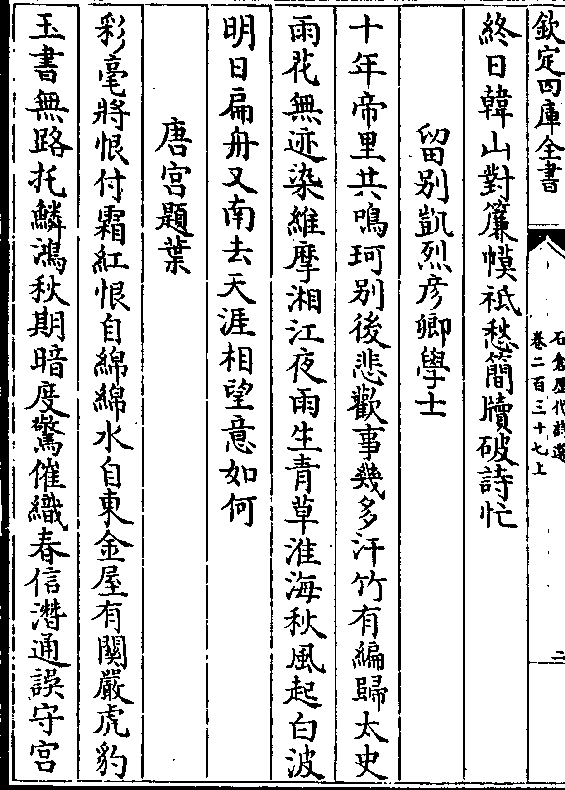 欽定四庫全書
石倉歷代詩選
卷二百三十七上
二
終日韓山對簾幙祗愁簡牘破詩忙
留别凱烈彦卿學士
十年帝里共鳴珂别後悲歡事幾多汗竹有編歸太史
雨花無迹染維摩湘江夜雨生青草淮海秋風起白波
明日扁舟又南去天涯相望意如何
唐宫題葉
彩毫將恨付霜紅恨自綿綿水自東金屋有關嚴虎豹
玉書無路托鱗鴻秋期暗度驚催織春信潛通誤守宫